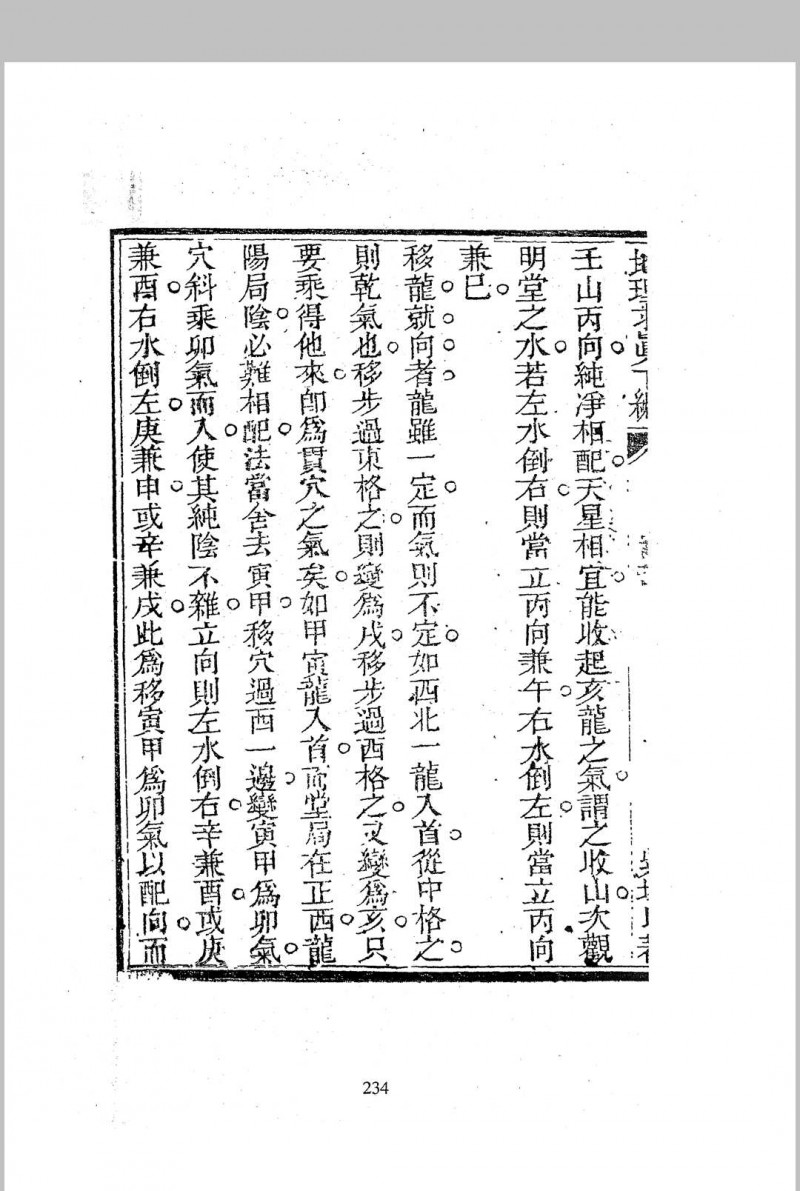 壬山丙向純淨相配天星相宜能收起亥龍之氣謂之收山次觀
明堂之水若左水倒右則當立丙向兼午右水倒左則當立丙向
兼巳
移龍就向者龍雖一定而氣則不定如西北一龍入首從中格之
則乾氣也移步過東格之則變爲戌移步過西格之又變爲亥只
要乘得他來卽爲貫穴之氣矣如甲寅龍入首而堂局在正西龍
陽局陰必難相配法當舍去寅甲移穴過西一邊變寅甲爲卯氣
穴斜乘卯氣而入使其純陰不雜立向則左水倒右辛兼酉或庚
兼酉右水倒左庚兼申或辛兼戌此爲移寅甲爲卯氣以配向而
234